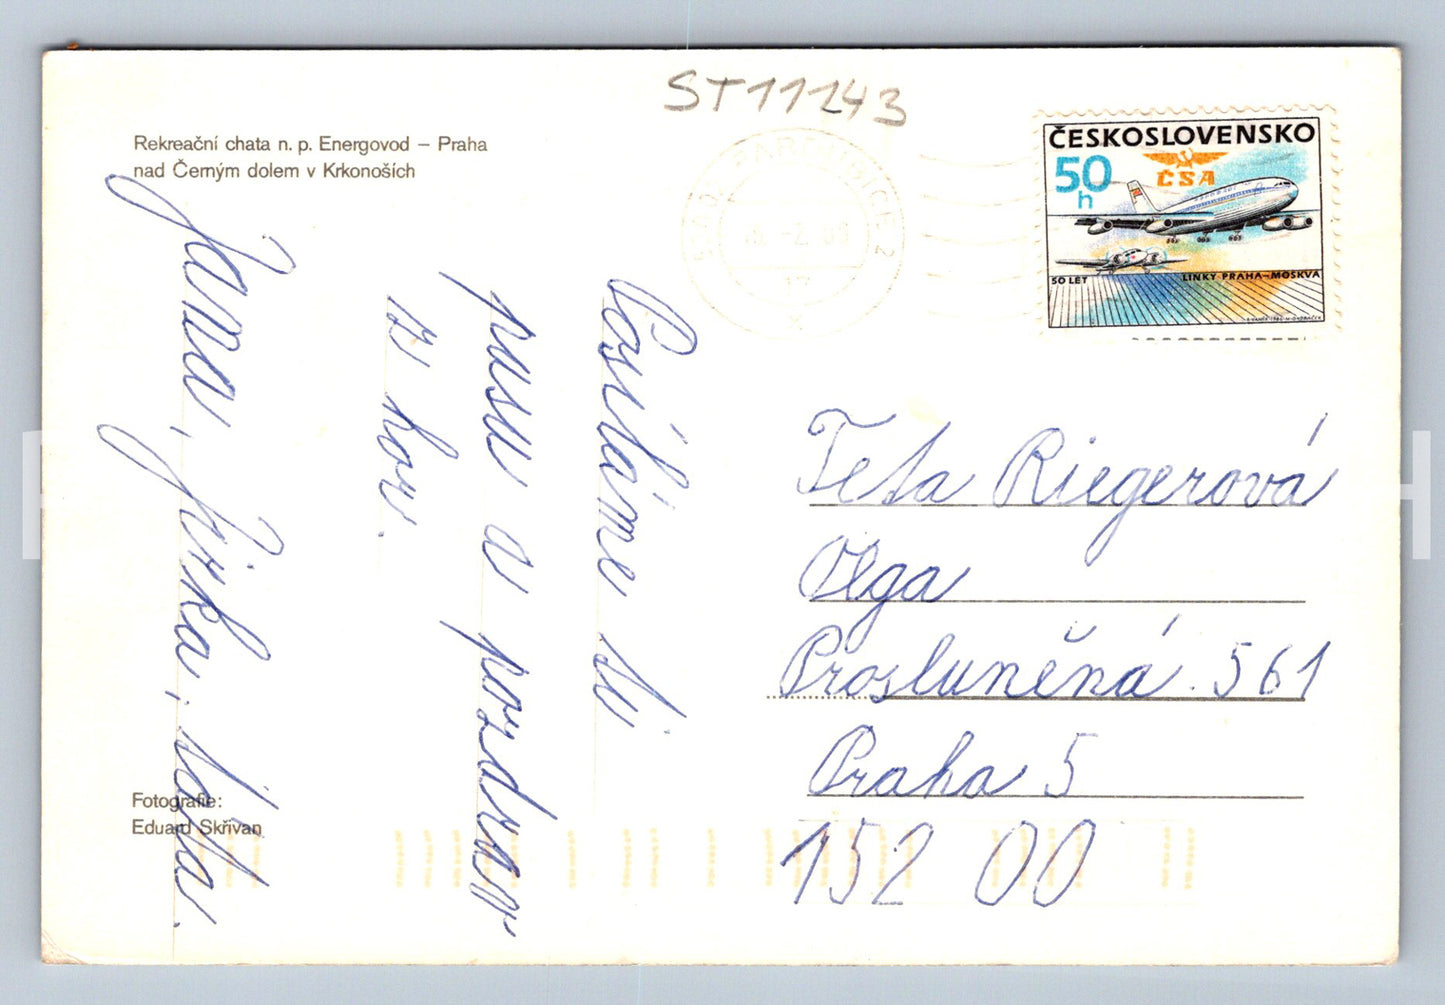 ST11243
Rekreační chata n. p. Energovod – Praha
nad Černým dolem v Krkonoších
ČESKOSLOVENSKO
50
h
ČSA
50 LET
LINKY PRAHA–MOSKVA
PARDUBICE 2
Posíláme Ti
pusu a pozdrav
z hor.
Jana, Jirka,
Teta Riegerová
Olga
Prosluněná 561
Praha 5
152 00
Fotografie:
Eduard Skřivan